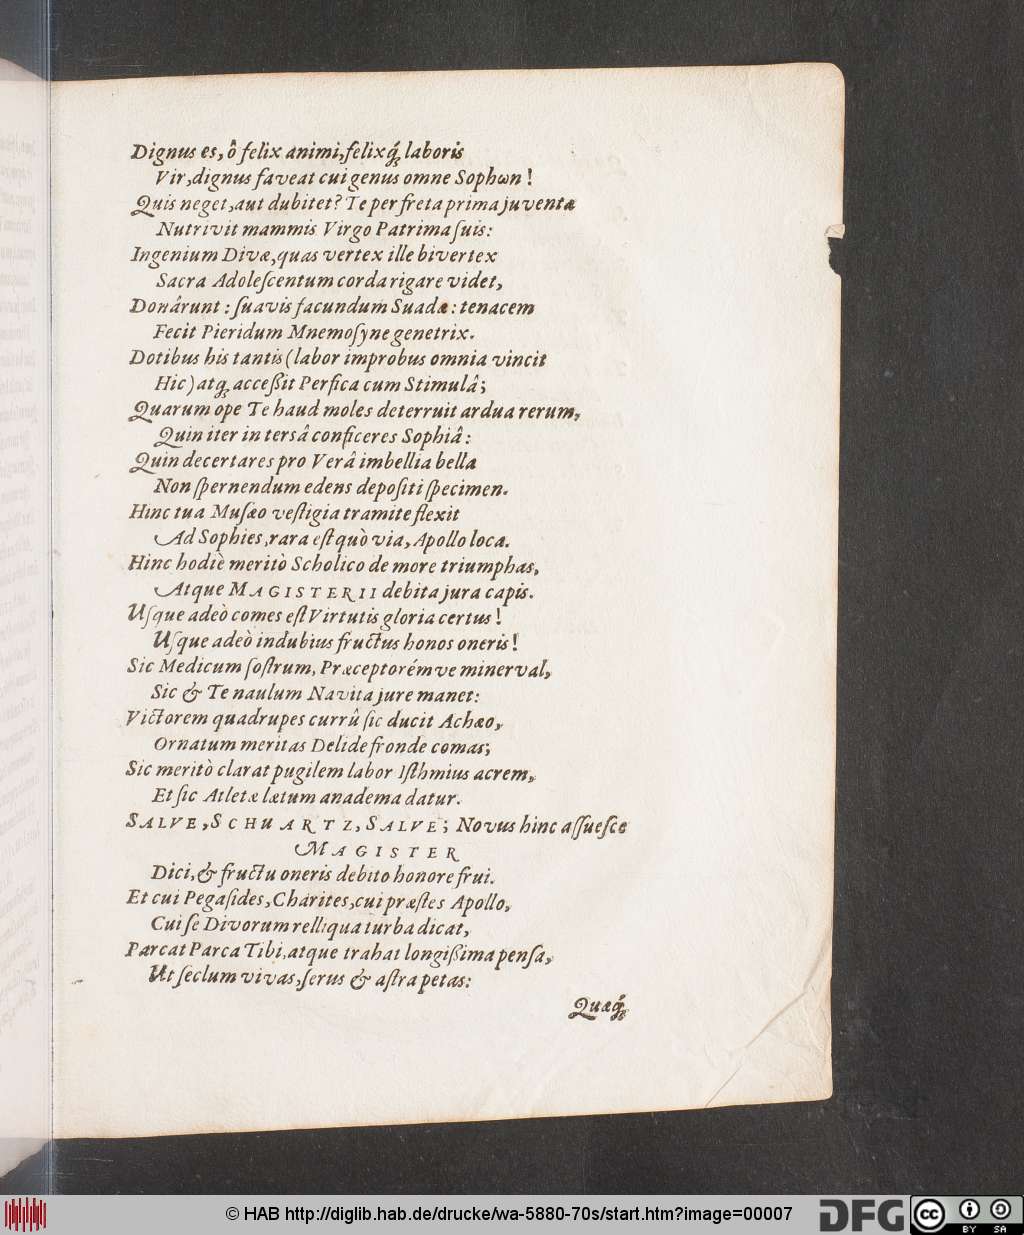 Dignus es, ô felix animi, felixq́ꝫ laboris
Vir, dignus faveat cui genus omne Sophων!
Quis neget, aut dubitet? Te per freta prima juventæ
Nutrivit mammis Virgo Patrima ſuis:
Ingenium Divæ, quas vertex ille bivertex
Sacra Adoleſcentum corda rigare videt,
Donârunt: ſuavis facundum Suadæ: tenacem
Fecit Pieridum Mnemoſyne genetrix.
Dotibus his tantis (labor improbus omnia vincit
Hic) atqꝫ acceßit Perſica cum Stimulâ;
Quarum ope Te haud moles deterruit ardua rerum,
Quin iter in tersâ conficeres Sophiâ:
Quin decertares pro Verâ imbellia bella
Non ſpernendum edens depoſiti ſpecimen.
Hinc tua Muſæo veſtigia tramite flexit
Ad Sophies, rara eſt quò via, Apollo loca.
Hinc hodiè meritò Scholico de more triumphas,
Atque MAGISTERII debita jura capis.
Uſque adeò comes eſt Virtutis gloria certus!
Uſque adeò indubius fructus honos oneris!
Sic Medicum ſoſtrum, Præceptorémve minerval,
Sic & Te naulum Navita jure manet:
Victorem quadrupes currû ſic ducit Achæo,
Ornatum meritas Delide fronde comas;
Sic meritò clarat pugilem labor Iſthmius acrem,
Et ſic Atletæ lætum anadema datur.
SALVE, SCHUARTZ, SALVE; Novus hinc aſſueſce
MAGISTER
Dici, & fructu oneris debito honore frui.
Et cui Pegaſides, Charites, cui præſtes Apollo,
Cui ſe Divorum reliqua turba dicat,
Parcat Parca Tibi, atque trahat longißima penſa,
Ut ſeclum vivas, ſerus & aſtra petas:
Quæq́ꝫ
© HAB http://diglib.hab.de/drucke/wa-5880-70s/start.htm?image=00007
DFG
cc
BY SA